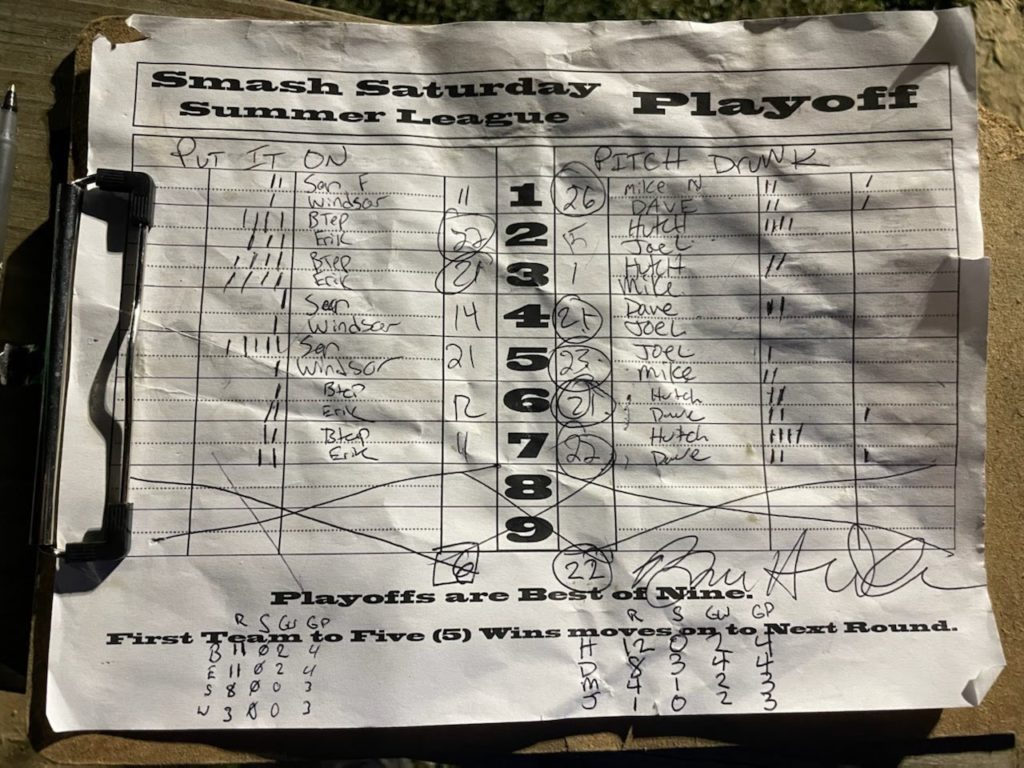 Smash Saturday
Summer League
Playoff
PUT IT ON
PITCH DRUNK
II Sean F 11 1 26 Mike N II I
I Windsor DAVE II I
IIII BTep 22 2 15 Hutch IIII
III Erik Joel
IIII BTep 21 3 1 HUTCH II
IIII Erik Mike
I Sean 14 4 21 Dave III
I Windsor JOEL
IIIII Sean 21 5 23 JOEL I
I Windsor Mike II
I Btep 12 6 21 Hutch II
II Erik Dave II I
II Btep 11 7 22 Hutch IIII
II Erik Dave II I
8
9
22
Playoffs are Best of Nine.
R S GW GP
R S GW GP
First Team to Five (5) Wins moves on to Next Round.
B 11 0 2 4
H 12 0 2 4
E 11 0 2 4
D 8 3 4 4
S 8 0 0 3
M 4 1 2 3
W 3 0 0 3
J 1 0 2 3